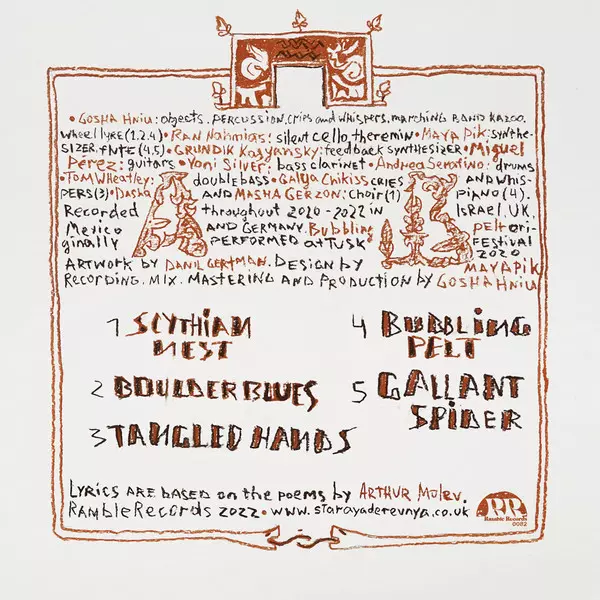 • GOSHA HNIU: objects, PERCUSSION, CRIES and WHISPERS, MARCHING BAND KAZOO,
WHEEL LYRE (1,2,4) • RAN NAHMIAS: SILENT CELLO, THEREMIN • MAYA PIK: SYNTHE-
SIZER, FLUTE (4,5) • GRUNDIK KASYANSKY: FEEDBACK SYNTHESIZER • MIGUEL
PÉREZ: GUITARS • YONI SILVER: BASS CLARINET • ANDREA SERAFINO: DRUMS
• TOM WHEATLEY: DOUBLE BASS • GALYA CHIKISS CRIES AND WHIS-
PERS (3) • DASHA AND MASHA GERZON: CHOIR (1) PIANO (4).
RECORDED THROUGHOUT 2020 - 2022 IN ISRAEL, UK,
MEXICO AND GERMANY. BUBBLING PELT ORI-
GINALLY PERFORMED AT TUSK FESTIVAL
2020
A B
ARTWORK BY DANIL GERTMAN. DESIGN BY MAYA PIK
RECORDING, MIX, MASTERING AND PRODUCTION BY GOSHA HNIU
1 SCYTHIAN NEST
2 BOULDER BLUES
3 TANGLED HANDS
4 BUBBLING PELT
5 GALLANT SPIDER
LYRICS ARE BASED on the poems by ARTHUR Molev.
RAMBLE RECORDS 2022 • www.starayaderevnya.co.uk
RR
Ramble Records
0082